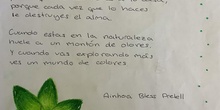 porque cada vez que lo haces
te destruyes el alma.
Cuando estas en la naturaleza
huele a un montón de olores.
Y cuando vas explorando más
ves un mundo de colores
Ainhoa Bless